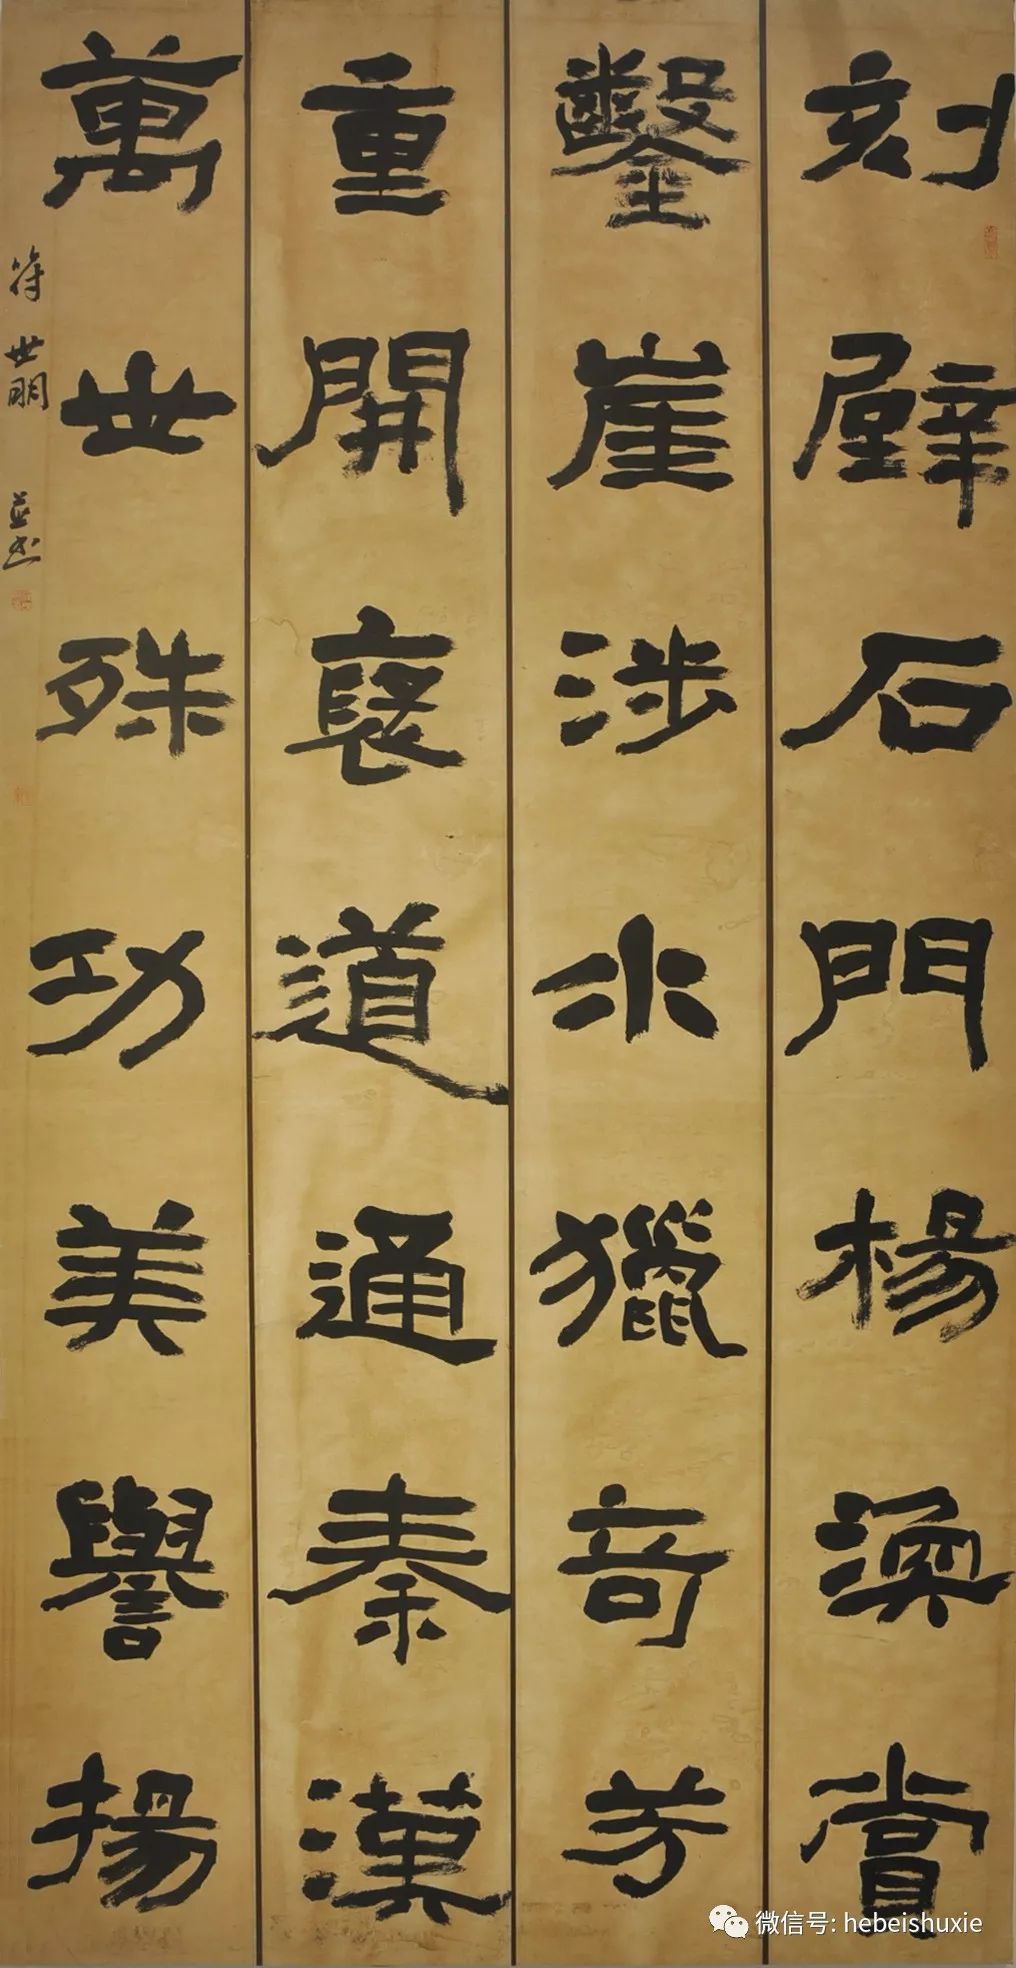 刻壁石門楊渙賞
鑿崖涉水獵奇芳
重開褒道通秦漢
萬世殊功美譽揚
符世明 并書
微信号: hebeishuxie